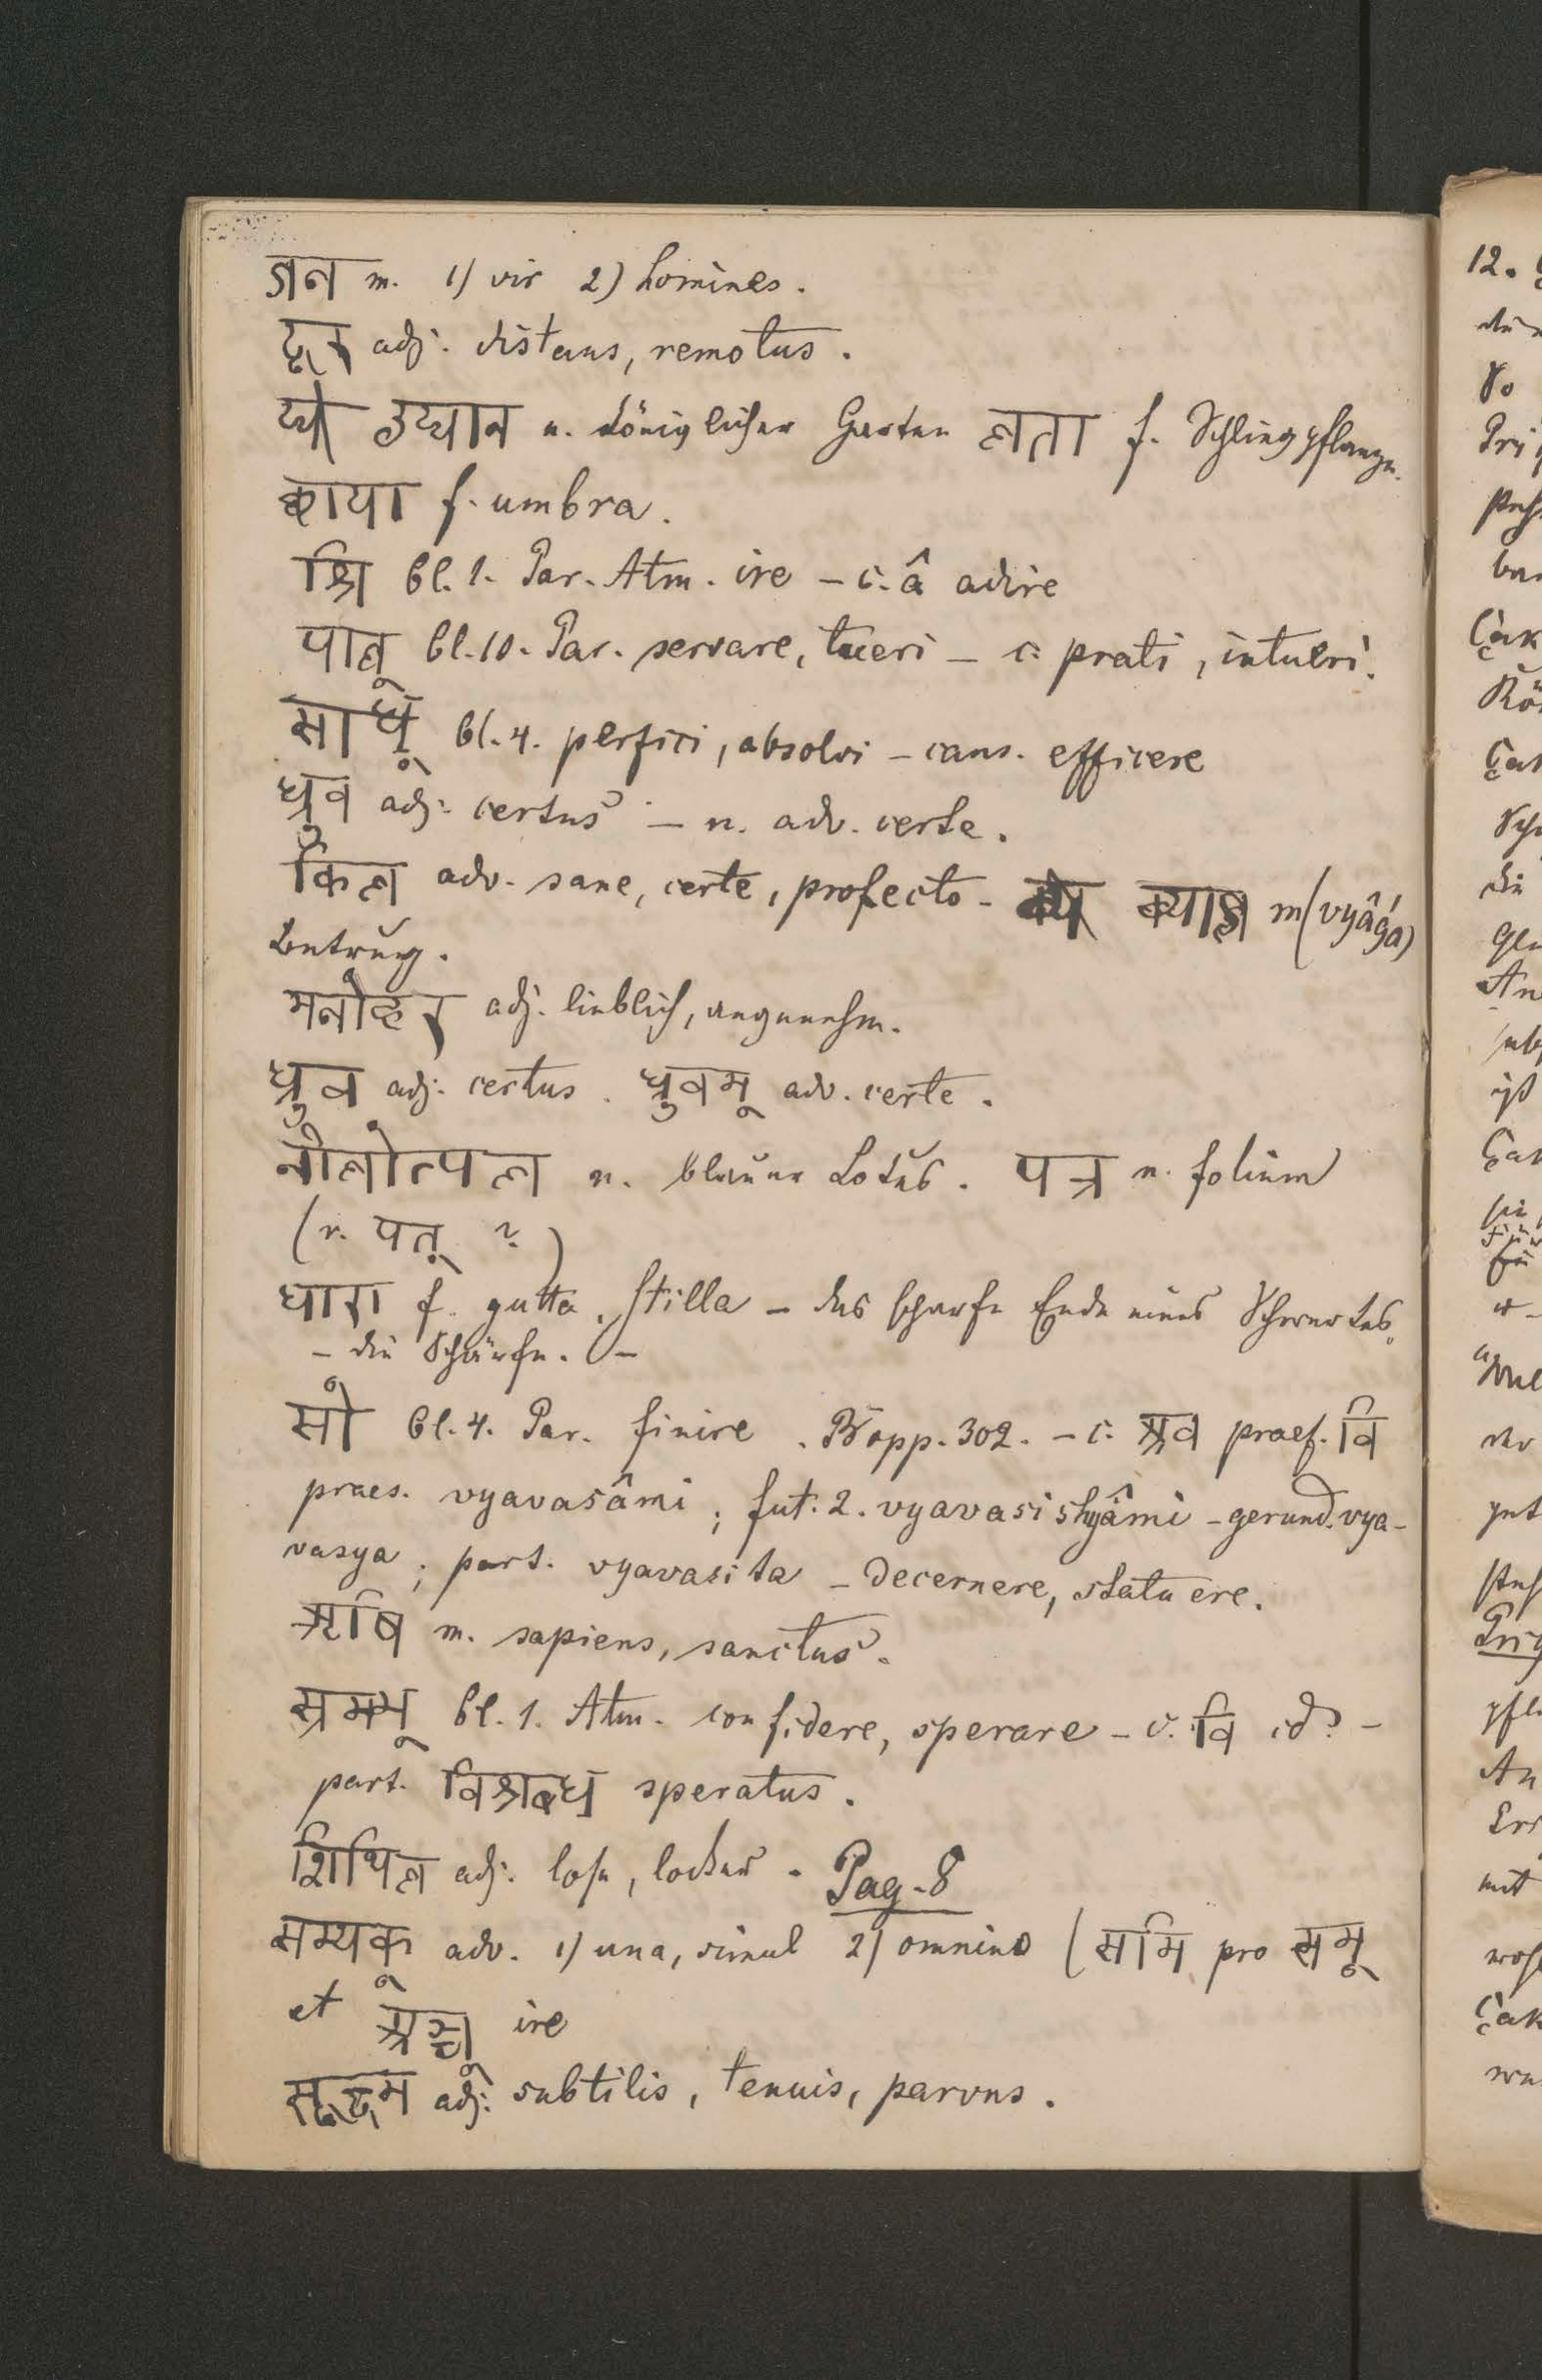 जन m. 1) vir 2) homines.
दूर adj. distans, remotus.
उद्यान n. königlicher Garten लता f. Schlingpflanze.
छाया f. umbra.
श्रि Cl. 1. Par. Atm. ire – c. â adire
पाल् Cl. 10. Par. servare, tueri – c. prati, intueri.
साध् Cl. 4. perfici, absolvi – caus. efficere
ध्रुव adj. certus – n. adv. certe.
किल adv. sane, certe, profecto – व्याज m (vyâǵa)
Betrug.
मनोहर adj. lieblich, angenehm.
ध्रुव adj. certus. ध्रुवम् adv. certe.
नीलोत्पल n. blauer Lotus. पत्र n. folium
(r. पत् ?)
धारा f. gutta, stilla – das scharfe Ende eines Schwertes,
– die Schärfe. –
सो Cl. 4. Par. finire. Bopp. 302. – c. अव praef. वि
praes. vyavasâmi; fut. 2. vyavasishyâmi – gerund. vya-
vasya; part. vyavasita – decernere, statuere.
ऋषि m. sapiens, sanctus.
स्रम्भ् Cl. 1. Atm. confidere, sperare – c. वि id. –
part. विश्रब्ध speratus.
शिथिल adj. lose, locker. Pag. 8
सम्यक् adv. 1) una, simul 2) omnino (समि pro सम्
et अञ्च् ire
सूक्ष्म adj. subtilis, tenuis, parvus.
12.